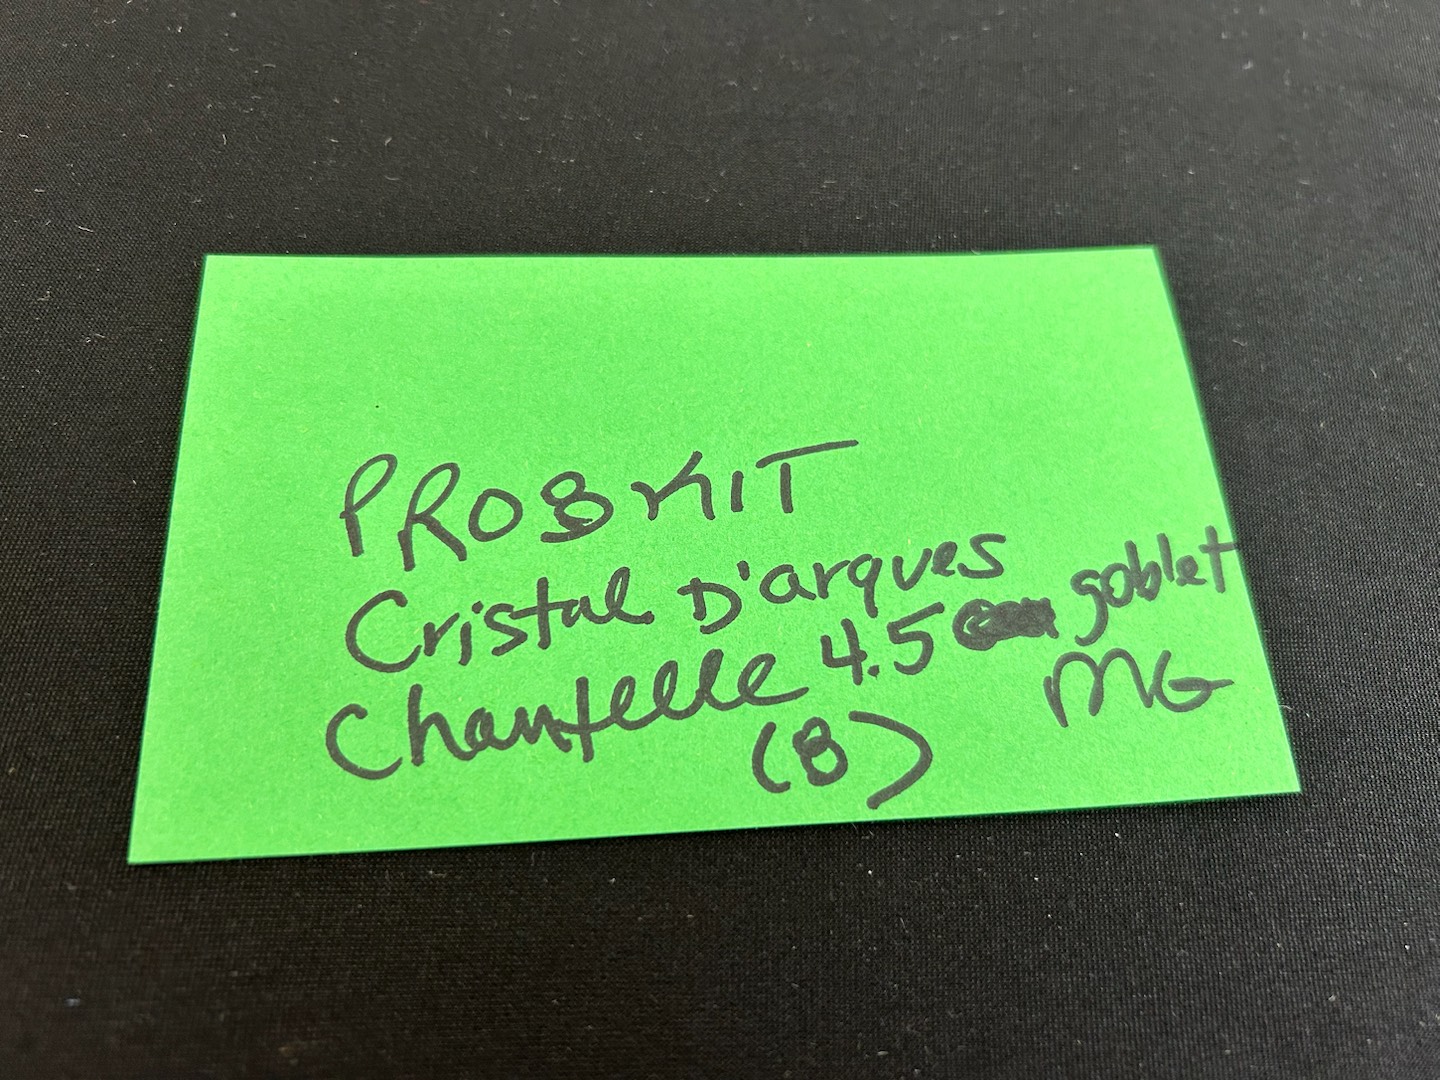 PRO8KIT
Cristal D'arques
Chantelle 4.5 goblet
(8) MG